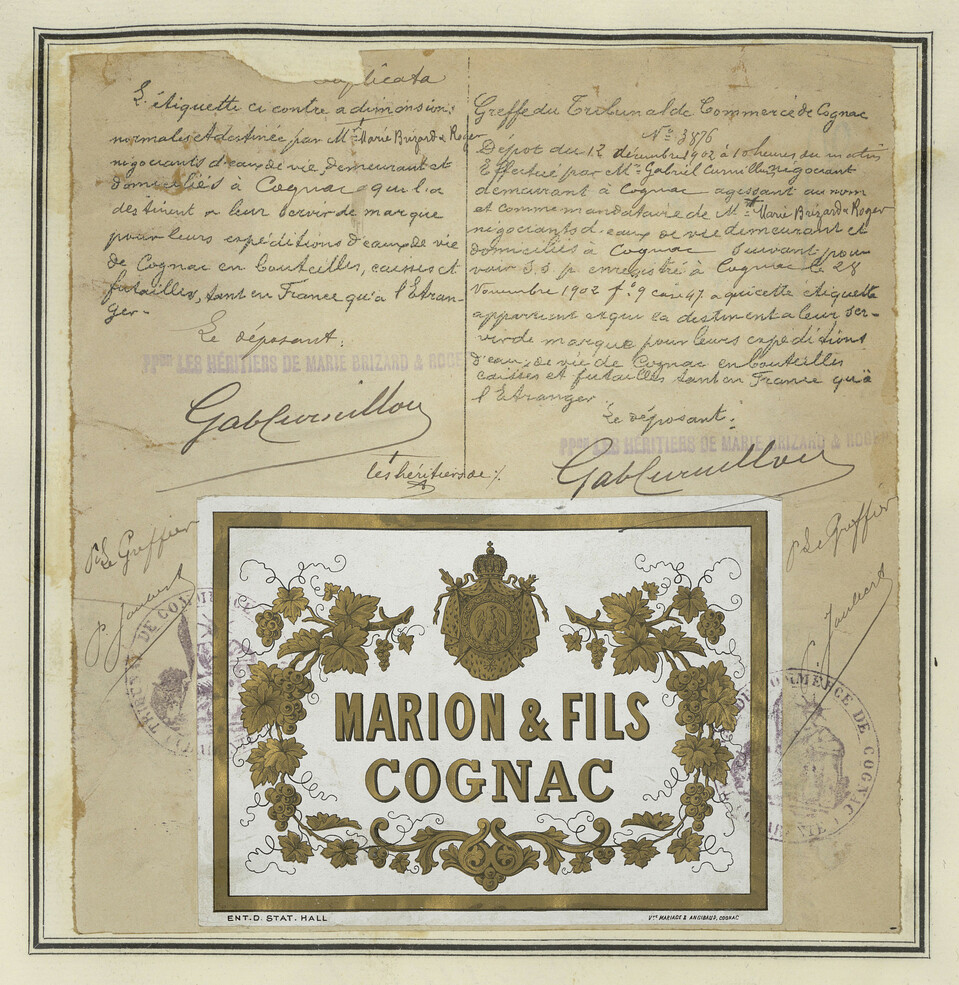 plicata
L'étiquette ci contre a dimensions
normales est destinée par Mrs Marie Brizard & Roger
négociants d'eaux de vie demeurant et
domiciliés à Cognac qui la
destinent à leur servir de marque
pour leurs expéditions d'eaux de vie
de Cognac en bouteilles, caisses et
futailles, tant en France qu'à l'Etran-
ger.-
Le déposant:
PPon LES HÉRITIERS DE MARIE BRIZARD & ROGE
Greffe du Tribunal de Commerce de Cognac
No 3876
Dépot du 12 décembre 1902 à 10 heures du matin
Effectué par Mr Gabriel négociant
demeurant à Cognac agissant au nom
et comme mandataire de Mrs Marie Brizard & Roger
négociants d'eaux de vie demeurant et
domiciliés à Cognac suivant pou-
voir S.S.p. enregistré à Cognac le 28
Novembre 1902 fo 9 case 47 a qui cette étiquette
appartient et qui la destinent a leur ser-
vir de marque pour leurs expéditions
d'eaux de vie de Cognac en bouteilles
caisses et futailles tant en France qu'à
l'Etranger
Le déposant:
PPon LES HÉRITIERS DE MARIE BRIZARD & ROGE
les héritiers de
Le Greffier
TRIBUNAL DE COMMERCE
Le Greffier
DE COMMERCE DE COGNAC
MARION & FILS
COGNAC
ENT.D. STAT. HALL
Vve MARIAGE & ANGIBAUD, COGNAC